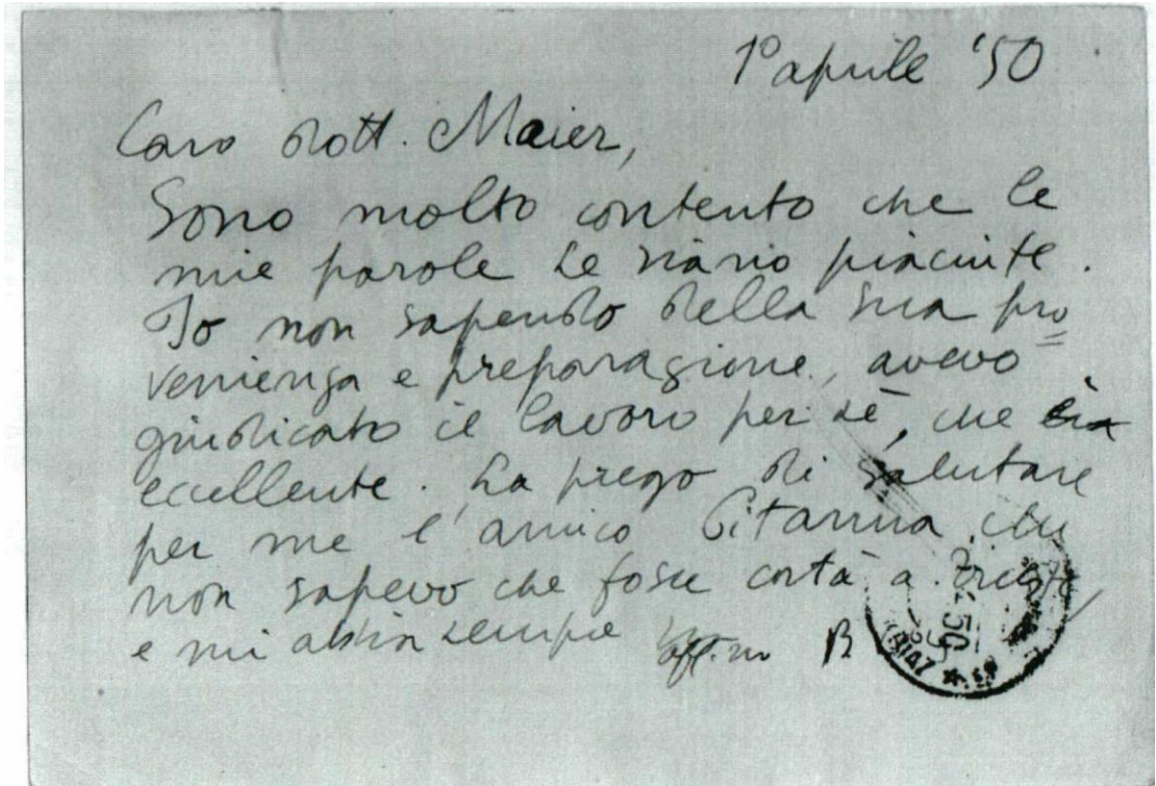 1º aprile '50
Caro dott. Maier,
Sono molto contento che le
mie parole Le siano piaciute.
Io non sapendo della sua pro
venienza e preparazione, avevo
giudicato il lavoro per sé, che era
eccellente. La prego di salutare
per me l'amico Pitanna, che
non sapevo che fosse costà a Trieste,
e mi abbia sempre aff.mo B
50